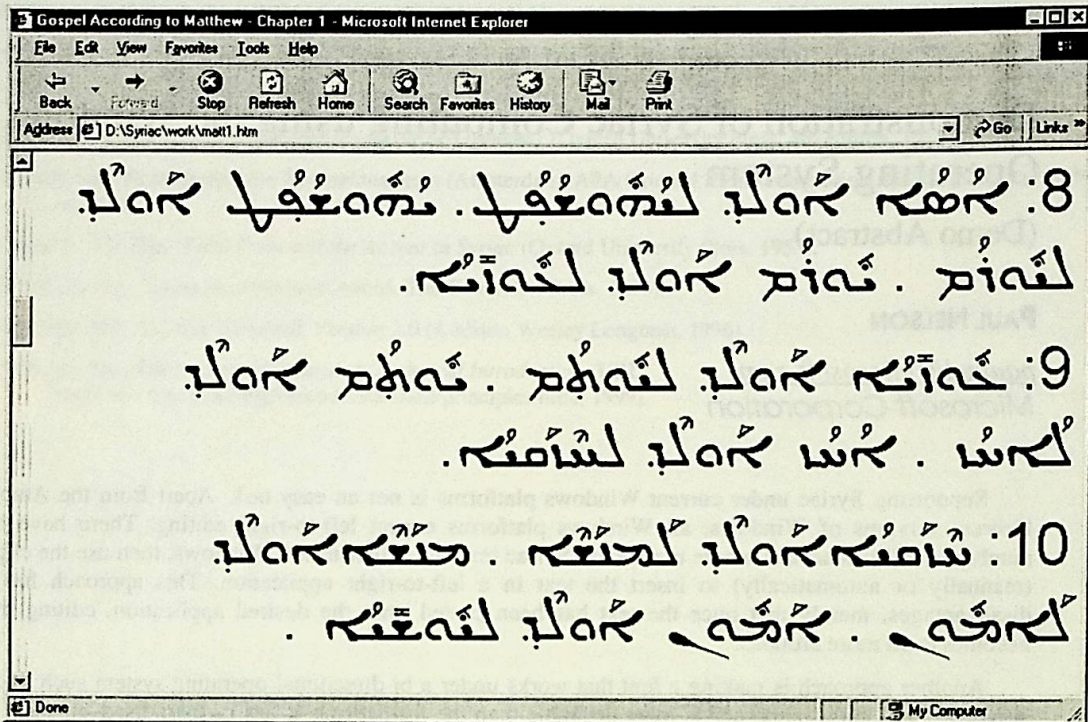 Gospel According to Matthew - Chapter 1 - Microsoft Internet Explorer
File Edit View Favorites Tools Help
Back Forward Stop Refresh Home Search Favorites History Mail Print
Address D:\Syriac\work\matt1.htm Go Links »
8: ܐܣܐ ܐܘܠܕ ܠܝܗܘܫܦܛ. ܝܗܘܫܦܛ ܐܘܠܕ
ܠܝܘܪܡ . ܝܘܪܡ ܐܘܠܕ ܠܥܘܙܝܐ.
9: ܥܘܙܝܐ ܐܘܠܕ ܠܝܘܬܡ . ܝܘܬܡ ܐܘܠܕ
ܠܐܚܙ . ܐܚܙ ܐܘܠܕ ܠܚܙܩܝܐ .
10: ܚܙܩܝܐ ܐܘܠܕ ܠܡܢܫܐ . ܡܢܫܐ ܐܘܠܕ
ܠܐܡܘܢ . ܐܡܘܢ ܐܘܠܕ ܠܝܘܫܝܐ .
Done My Computer